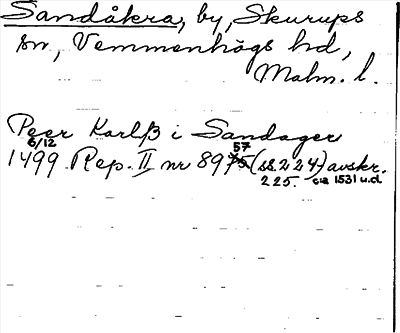 Sandåkra, by, Skurups
sn, Vemmenhögs hd,
Malm. l.
Peer Karlß i Sandager
6/12 57
1499 Rep. II nr 8975 (ss. 224) avskr.
225. ca 1531 u.d.